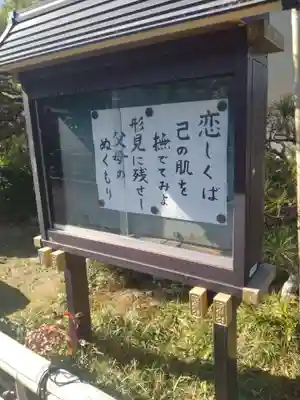 恋しくば
己の肌を
撫でてみよ
形見に残せし
父母の
ぬくもり